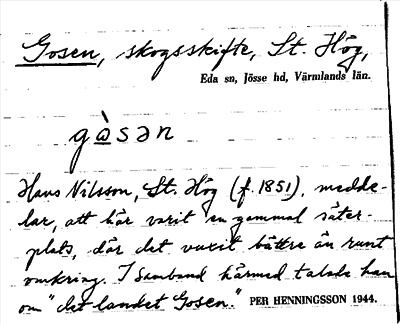 Gosen, skogsskifte, St. Hög,
Eda sn, Jösse hd, Värmlands län.
gὰsən
Hans Nilsson, St. Hög (f. 1851), medde-
lar, att här varit en gammal säter-
plats, där det vuxit bättre än runt
omkring. I samband härmed talade han
om "det landet Gosen." PER HENNINGSSON 1944.